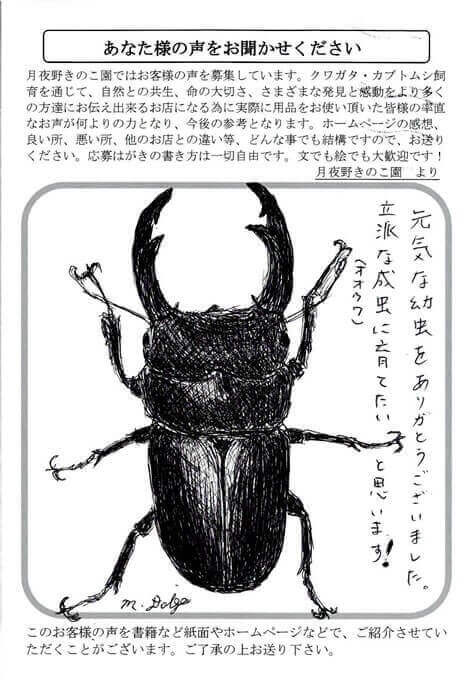 あなた様の声をお聞かせください
月夜野きのこ園ではお客様の声を募集しています。クワガタ・カブトムシ飼
育を通じて、自然との共生、命の大切さ、さまざまな発見と感動をより多く
の方達にお伝え出来るお店になる為に実際に用品をお使い頂いた皆様の率直
なお声が何よりの力となり、今後の参考となります。ホームページの感想、
良い所、悪い所、他のお店との違い等、どんな事でも結構ですので、お送り
ください。応募はがきの書き方は一切自由です。文でも絵でも大歓迎です！
月夜野きのこ園　より
元気な幼虫をありがとうございました。
立派な成虫に育てたいと思います！
(オオクワ)
このお客様の声を書籍など紙面やホームページなどで、ご紹介させてい
ただくことがございます。ご了承の上お送り下さい。